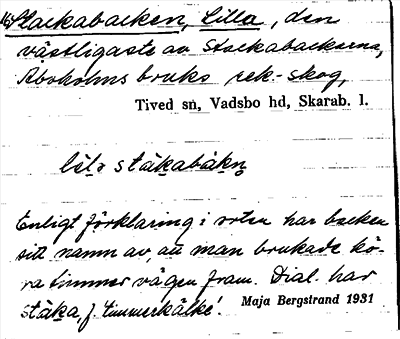 Stackabacken, Lilla, den
västligaste av Stackabackarna,
Aboholms bruks rek-skog,
Tived sn, Vadsbo hd, Skarab. l.
lilə stäkabäkn̥
Enligt förklaring i orten har backen
sitt namn av, att man brukade kö-
ra timmer vägen fram. Dial. har
stäka, f. 'timmerkälke'.
Maja Bergstrand 1931